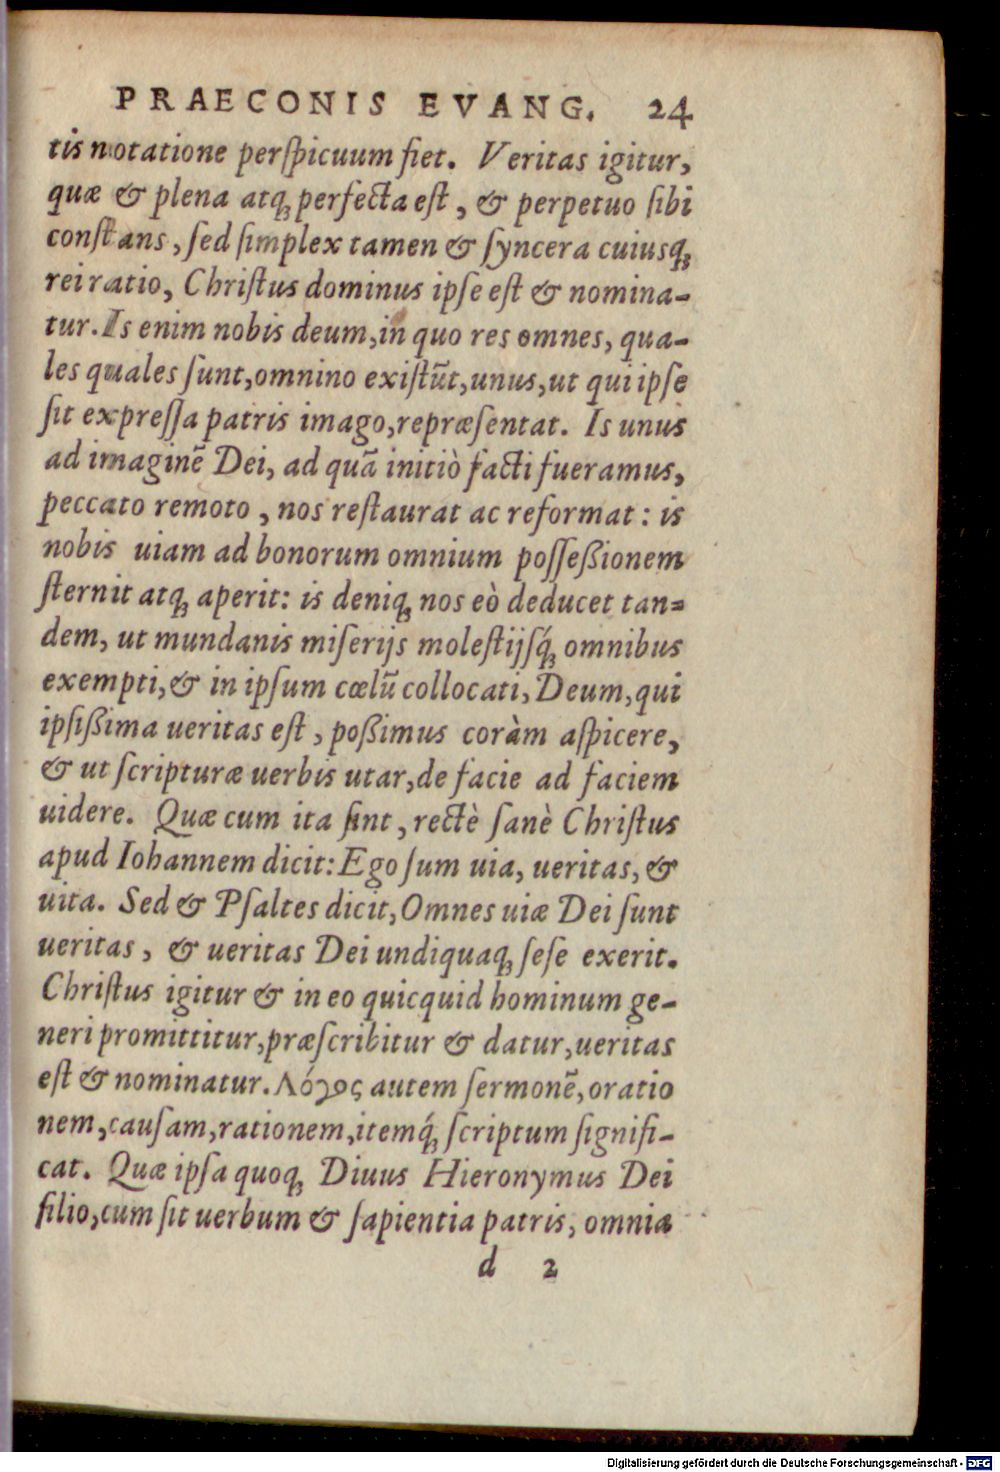 PRAECONIS EVANG. 24
tis notatione perſpicuum fiet. Veritas igitur,
quæ & plena atq́ꝫ perfecta eſt, & perpetuo ſibi
conſtans, ſed ſimplex tamen & ſyncera cuiusqꝫ
rei ratio, Chriſtus dominus ipſe eſt & nomina-
tur. Is enim nobis deum, in quo res omnes, qua-
les quales ſunt, omnino exiſtūt, unus, ut qui ipſe
ſit expreſſa patris imago, repræſentat. Is unus
ad imaginē Dei, ad quā initiò facti fueramus,
peccato remoto, nos reſtaurat ac reformat: is
nobis uiam ad bonorum omnium poſſeßionem
ſternit atqꝫ aperit: is deniqꝫ nos eò deducet tan-
dem, ut mundanis miſerijs moleſtijſq́ꝫ omnibus
exempti, & in ipſum cœlū collocati, Deum, qui
ipſißima ueritas eſt, poßimus coràm aſpicere,
& ut ſcripturæ uerbis utar, de facie ad faciem
uidere. Quæ cum ita ſint, rectè ſanè Chriſtus
apud Iohannem dicit: Ego ſum uia, ueritas, &
uita. Sed & Pſaltes dicit, Omnes uiæ Dei ſunt
ueritas, & ueritas Dei undiquaqꝫ ſeſe exerit.
Chriſtus igitur & in eo quicquid hominum ge-
neri promittitur, præſcribitur & datur, ueritas
eſt & nominatur. Λόγος autem ſermonē, oratio
nem, cauſam, rationem, itemq́ꝫ ſcriptum ſignifi-
cat. Quæ ipſa quoqꝫ Diuus Hieronymus Dei
filio, cum ſit uerbum & ſapientia patris, omnia
d 2
Digitalisierung gefördert durch die Deutsche Forschungsgemeinschaft - DFG